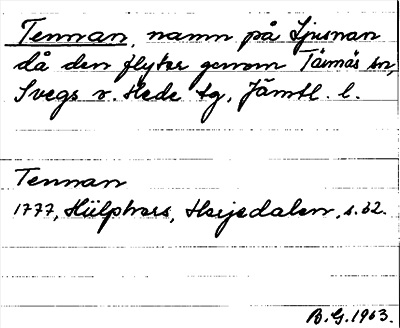 Tennan, namn på Ljusnan
då den flyter genom Tännäs sn,
Svegs o. Hede tg, Jämtl. l.
Tennan
1777, Hülphers, Herjedalen, s. 62.
B.G. 1963.